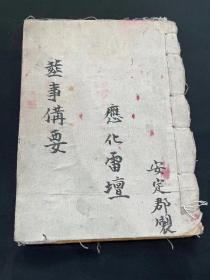 安定郡製
應化雷壇
事備要